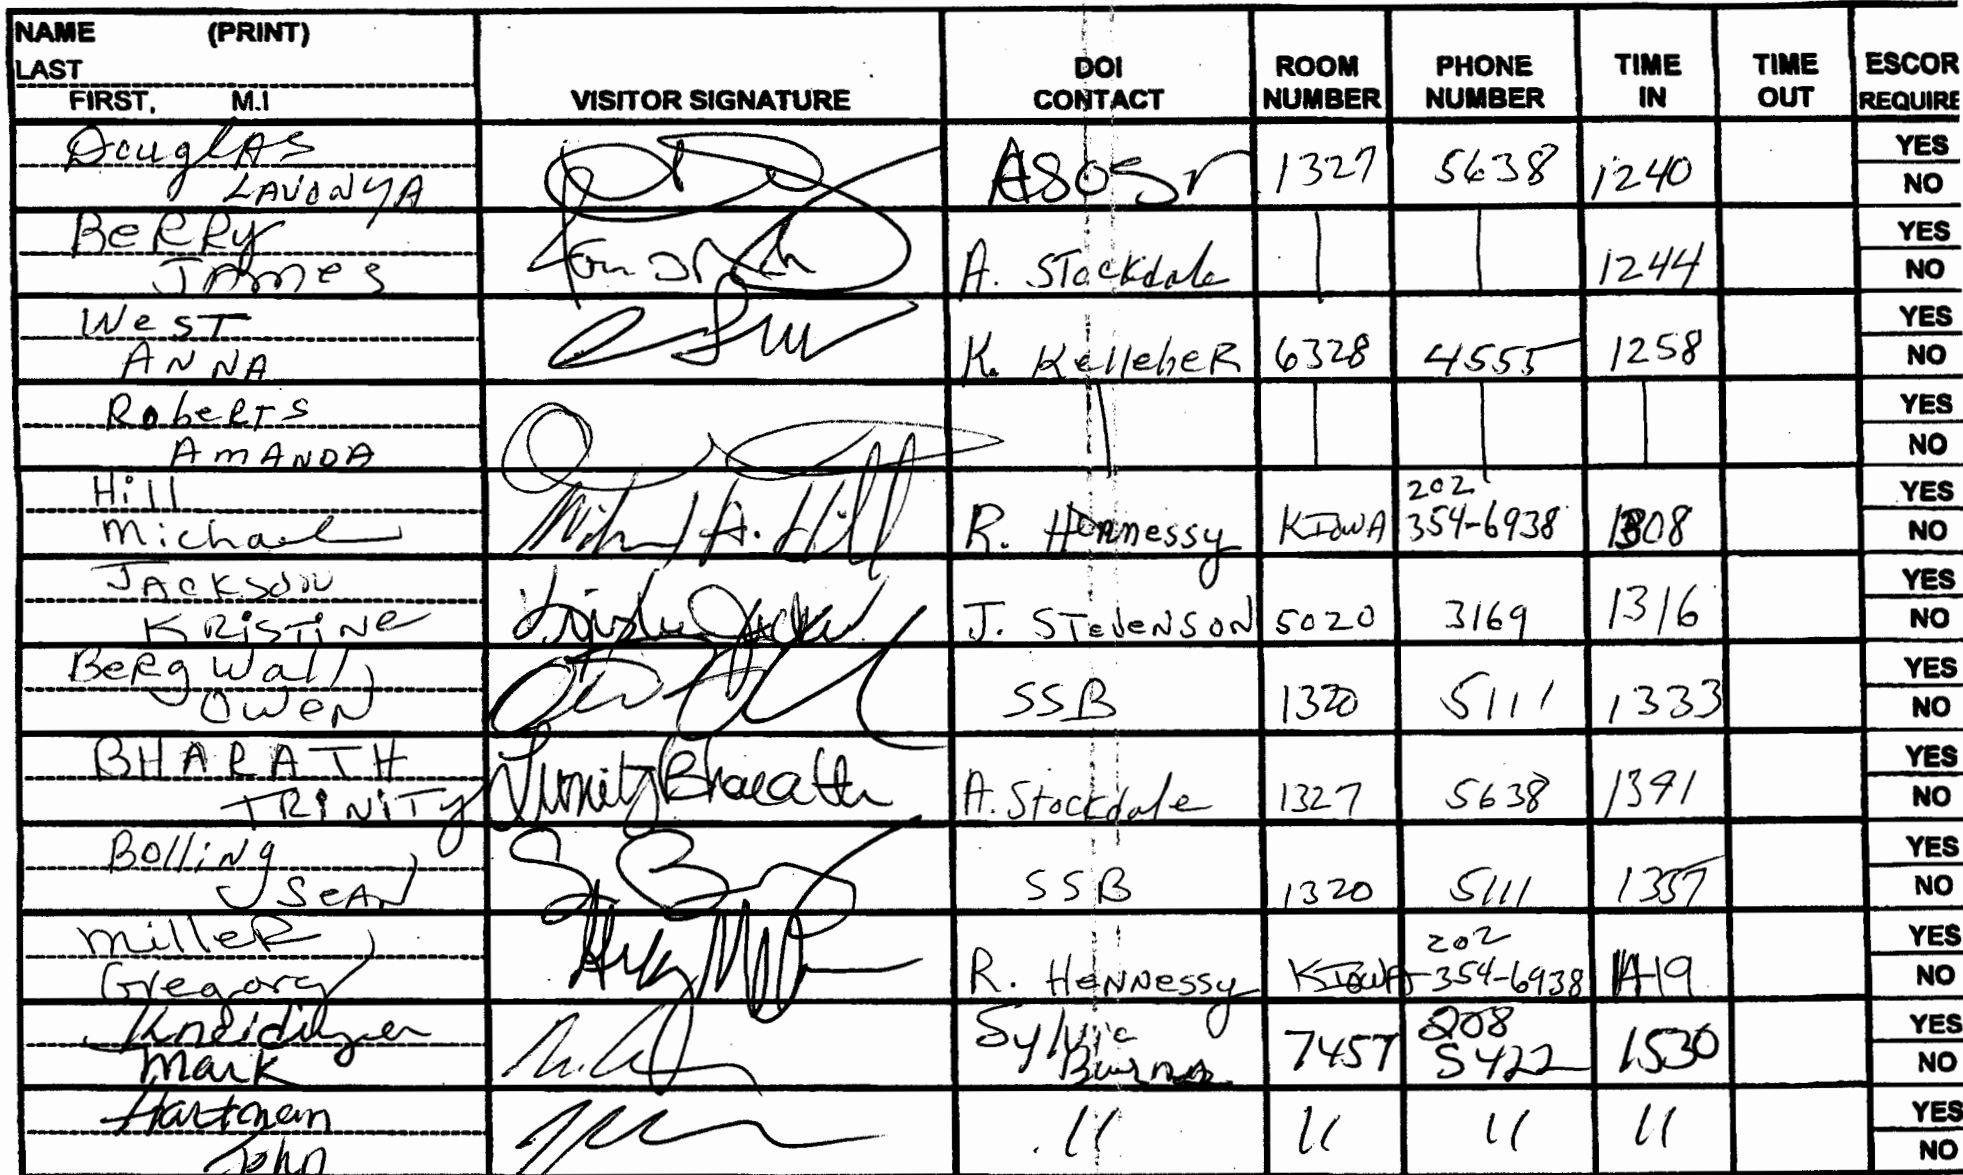 NAME (PRINT)
LAST
FIRST, M.I
VISITOR SIGNATURE
DOI CONTACT
ROOM NUMBER
PHONE NUMBER
TIME IN
TIME OUT
ESCOR
REQUIRE
Douglas
LAVONYA
1327 5638 1240
YES
NO
BeRRy
JAmes
A. Stockdale | | 1244
YES
NO
West
ANNA
K. KelleheR 6328 4555 1258
YES
NO
RobeRTS
AmANDA
| | | |
YES
NO
Hill
Michael
Michael A. Hill
R. Hennessy KIOWA 202 354-6938 1308
YES
NO
JACKSON
KRISTINe
J. STeveNSON 5020 3169 1316
YES
NO
BeRgwall,
OweN
SSB 1320 5111 1333
YES
NO
BHARATH
TRINITY
Trinity Bharath
A. Stockdale 1327 5638 1341
YES
NO
BolliNg,
SeAN
SSB 1320 5111 1357
YES
NO
MilleR,
Gregory
R. HeNNessy KIOWA 202 354-6938 1419
YES
NO
Kneidinger
Mark
Sylvia Burns 7457 208 5422 1530
YES
NO
Hartman
John
" " " "
YES
NO